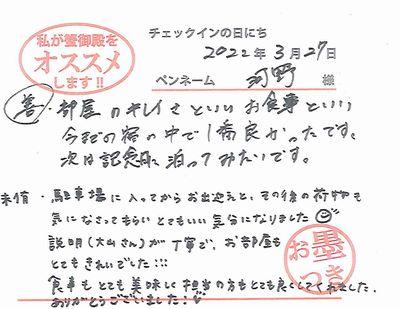 私が蟹御殿を
オススメ
します!!
チェックインの日にち
2022年3月27日
ペンネーム 河野 様
・部屋のキレイさといいお食事といい
今までの宿の中で1番良かったです。
次は記念日に泊ってみたいです。
・駐車場に入ってからお出迎えと、その後の荷物も
気になさってもらいとてもいい気分になりました
説明(大山さん)が丁寧で、お部屋も
とてもきれいでした!!!
食事もとても美味しく担当の方もとても良くしてくれました。
ありがとうございました!
お墨
つき